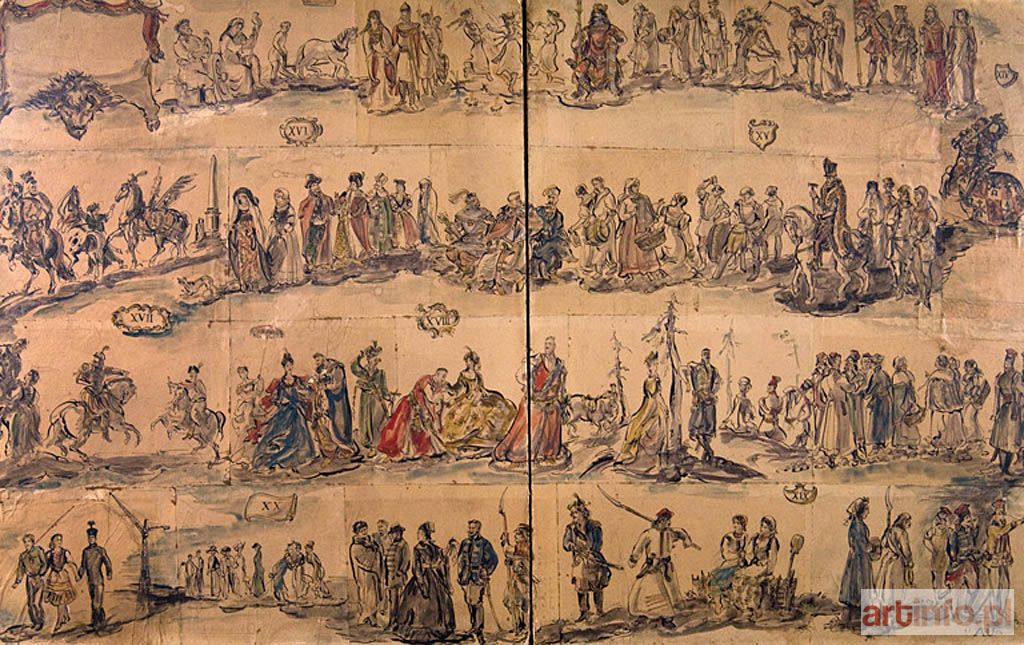 XVI
XV
XVII
XVIII
XX
XIV
artinfo.pl